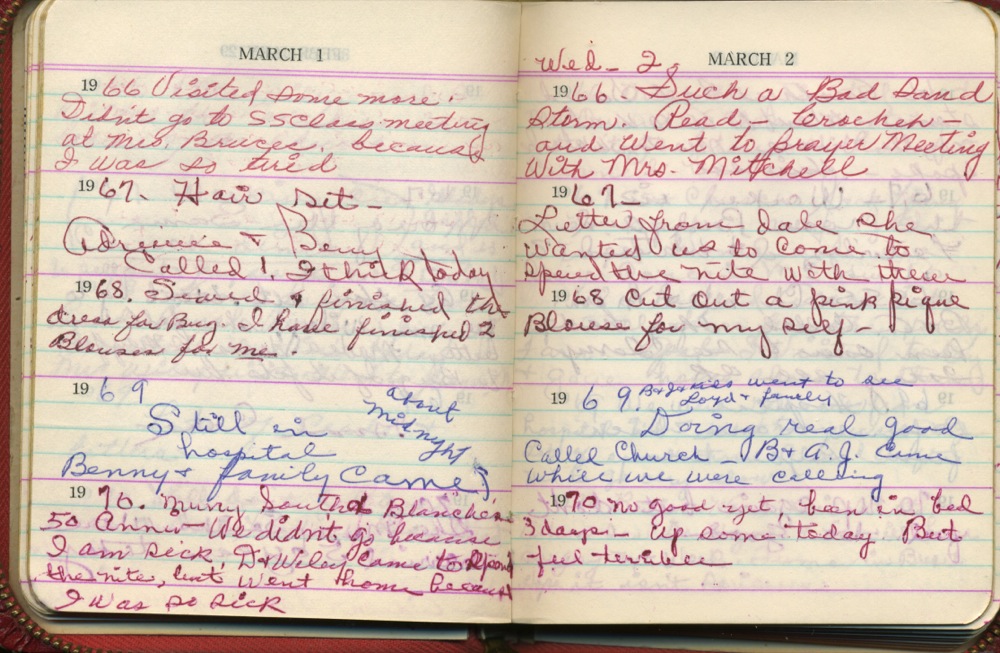 MARCH 1
1966 Visited some more.
Didn't go to SSClass meeting
at Mrs. Bruces. because
I was so tired
1967. Hair set-
+ Benny
Called! I think today
1968. Sewed & finished the
dress for Bug. I have finished 2
Blouses for me.
1969
about
midnght
Still in
hospital
Benny + family came)
1970. Murry South & Blanche's
50 Anniv- We didn't go because
I am sick. D+Wiley came to spend
the nite, but went home because
I was so sick
Wed- 2.
MARCH 2
1966. Such a Bad Sand
storm. Read- Crochen-
and went to prayer Meeting
With Mrs. Mitchell
1967-
Letter from Dale she
wanted us to come to
spend the nite with them
1968 Cut out a pink pique
Blouse for my self-
1969. B+J+kids went to see
Loyd + family
Doing real good
Called Church- B+A.J. Came
while we were calling
1970 no good yet, been in bed
3 days- Up some today But
feel terrible